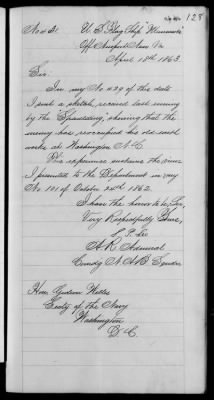 128
No 4
U.S. Flag Ship "Minnesota"
Off Newport News Va
April 18th 1863.
Sir
In my No 429 of this date
I send a sketch, received last evening
by the "Spaulding", showing that the
enemy has reoccupied his old earth
works at Washington N.C.
This experience sustains the views
I presented to the Department in my
No 191 of October 24th 1862.
I have the honor to be, Sir,
Very Respectfully Yours,
S. P. Lee
A.R. Admiral
Comdg N.A.B. Squdn.
Hon. Gideon Welles
Secty of the Navy
Washington
D.C.